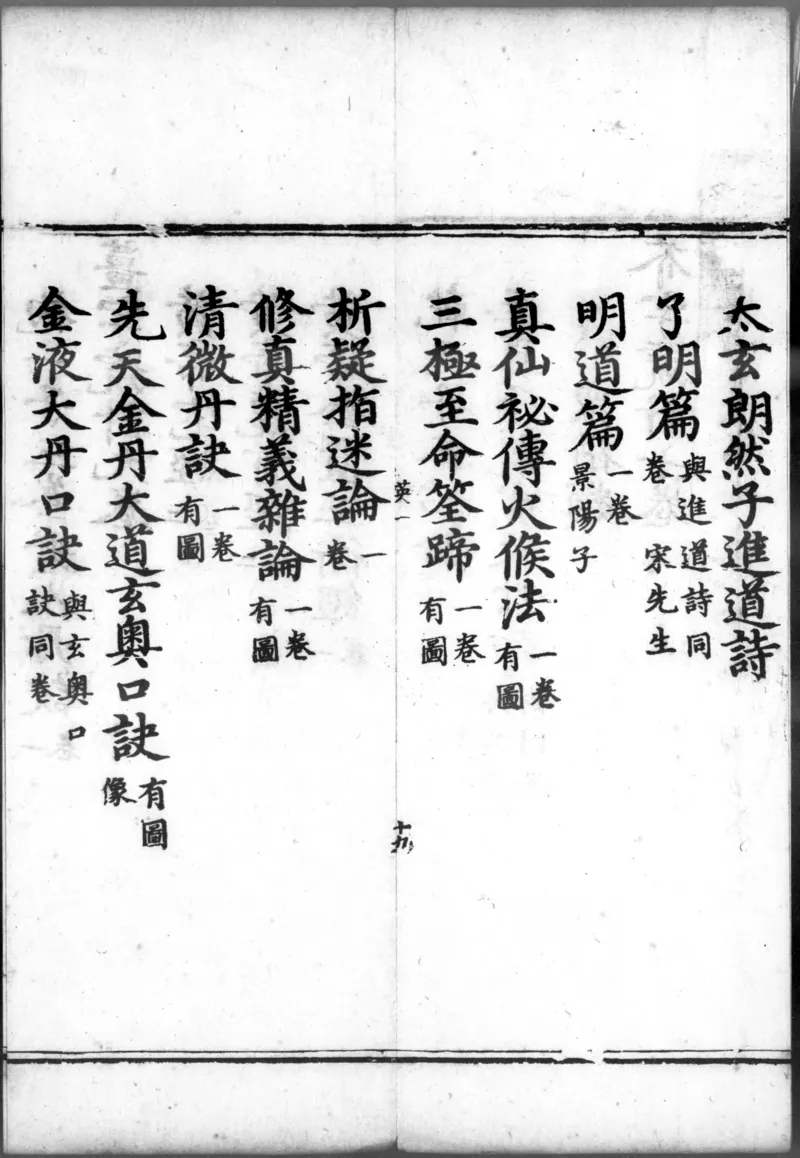 太玄朗然子進道詩
了明篇 與進道詩同卷 宋先生
明道篇 一卷 景陽子
真仙祕傳火候法 一卷有圖
三極至命筌蹄 一卷有圖
英一
十九
析疑指迷論 一卷
修真精義雜論 一卷有圖
清微丹訣 一卷有圖
先天金丹大道玄奧口訣 有圖像
金液大丹口訣 與玄奧口訣同卷